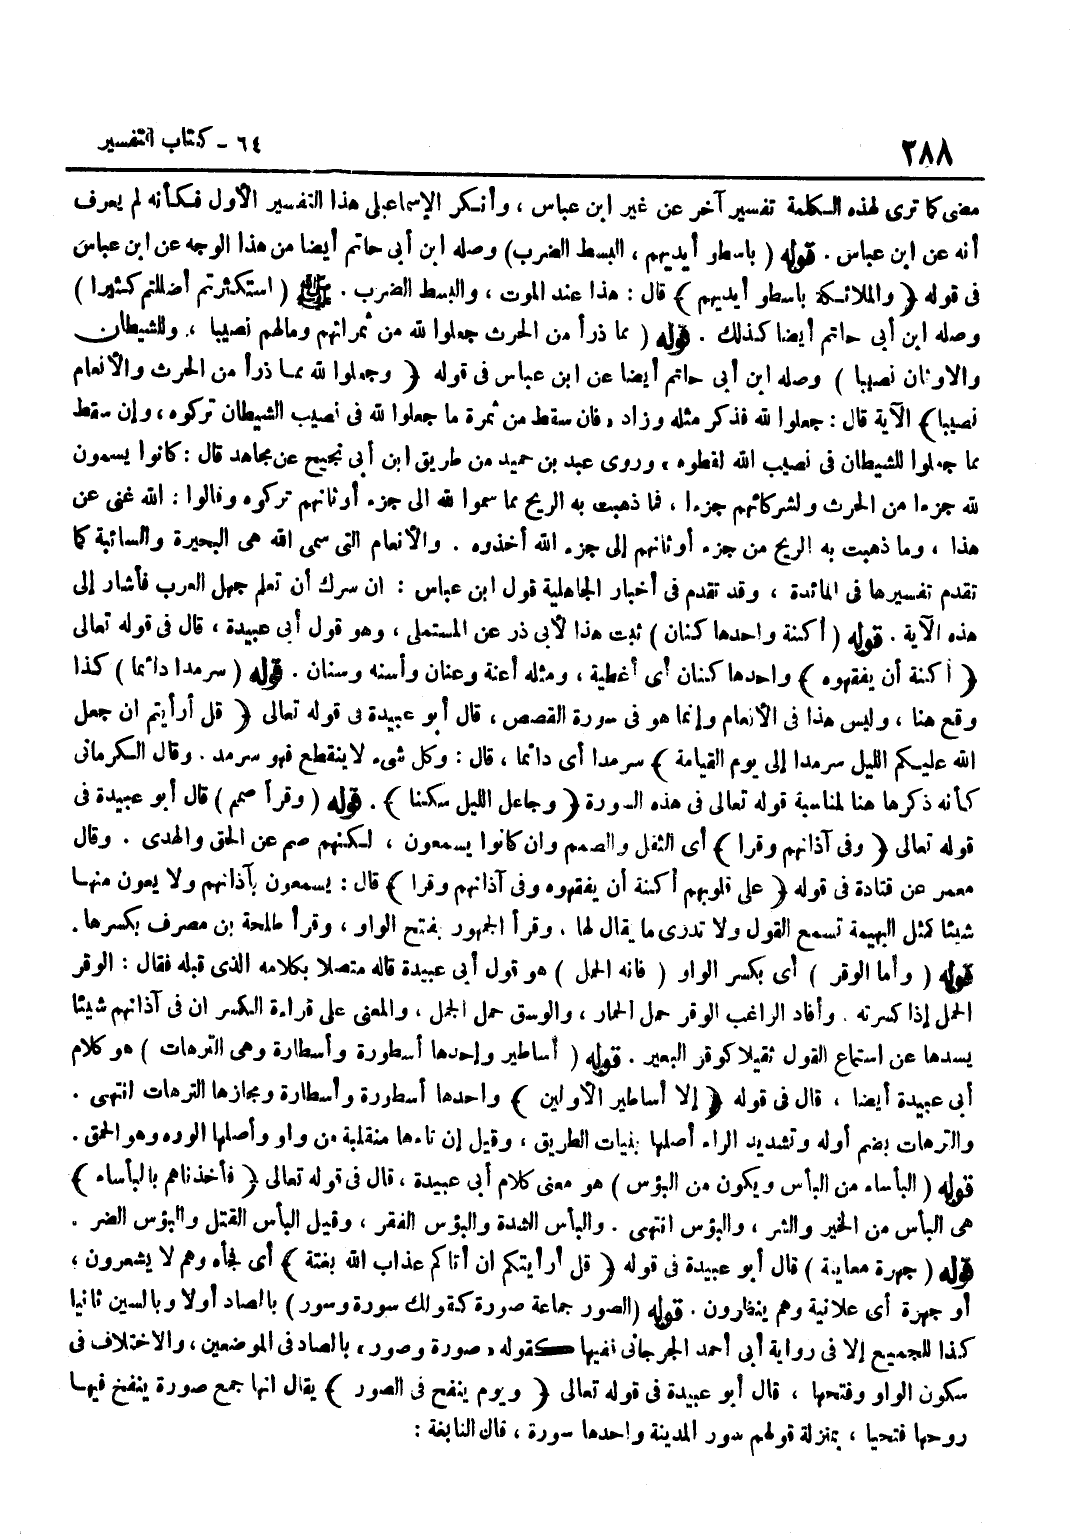 ٢٨٨
٦٤ - كتاب التفسير
مضى كما ترى لهذه الكلمة تفسير آخر عن غير ابن عباس ، وأنكر الإسماعيلى هذا التفسير الأول فكأنه لم يعرف
أنه عن ابن عباس . قوله ( باسطو أيديهم ، البسط الضرب) وصله ابن أبى حاتم أيضا من هذا الوجه عن ابن عباس
فى قوله ﴿ والملائكة باسطو أيديهم ﴾ قال : هذا عند الموت ، والبسط الضرب . ( استكثرتم أضللتم كثيرا )
وصله ابن أبى حاتم أيضا كذلك . قوله ( مما ذرأ من الحرث جعلوا لله من ثمراتهم ومالهم نصيبا ، وللشيطان
والاوثان نصيبا ) وصله ابن أبى حاتم أيضا عن ابن عباس فى قوله ﴿ وجعلوا لله مما ذرأ من الحرث والأنعام
نصيبا﴾ الآية قال : جعلوا لله فذكر مثله وزاد ، فان سقط من ثمرة ما جعلوا لله فى نصيب الشيطان تركوه ، وإن سقط
مما جعلوا للشيطان فى نصيب الله لقطوه ، وروى عبد بن حميد من طريق ابن أبى نجيح عن مجاهد قال : كانوا يسمون
لله جزءا من الحرث ولشركائهم جزءا ، فما ذهبت به الريح مما سموا لله الى جزء أوثانهم تركوه وقالوا : الله غنى عن
هذا ، وما ذهبت به الريح من جزء أوثانهم إلى جزء الله أخذوه . والأنعام التى سمى الله هى البحيرة والسائبة كما
تقدم تفسيرها فى المائدة ، وقد تقدم فى أخبار الجاهلية قول ابن عباس : ان سرك أن تعلم جهل العرب فأشار إلى
هذه الآية . قوله ( أكنة واحدها كنان ) ثبت هذا لأبى ذر عن المستملى ، وهو قول أبى عبيدة ، قال فى قوله تعالى
﴿ أكنة أن يفقهوه ﴾ واحدها كنان أى أغطية ، ومثله أعنة وعنان وأسنه وسنان . قوله ( سرمدا دائما ) كذا
وقع هنا ، وليس هذا فى الأنعام وإنما هو فى سورة القصص ، قال أبو عبيدة فى قوله تعالى ﴿ قل أرأيتم ان جعل
الله عليكم الليل سرمدا إلى يوم القيامة ﴾ سرمدا أى دائما ، قال : وكل شىء لاينقطع فهو سرمد . وقال الكرمانى
كأنه ذكرها هنا لمناسبة قوله تعالى فى هذه السورة ﴿ وجاعل الليل سكنا ﴾ . قوله ( وقرأ صمم ) قال أبو عبيدة فى
قوله تعالى ﴿ وفى آذانهم وقرا ﴾ أى الثقل والصمم وان كانوا يسمعون ، لكنهم صم عن الحق والهدى . وقال
معمر عن قتادة فى قوله ﴿ على قلوبهم أكنة أن يفقهوه وفى آذانهم وقرا ﴾ قال : يسمعون بآذانهم ولا يعون منها
شيئا كمثل البهيمة تسمع القول ولا تدرى ما يقال لها ، وقرأ الجمهور بفتح الواو ، وقرأ طلحة بن مصرف بكسرها .
قوله ( وأما الوقر ) أى بكسر الواو ( فانه الحمل ) هو قول أبى عبيدة قاله متصلا بكلامه الذى قبله فقال : الوقر
الحمل إذا كسرته . وأفاد الراغب الوقر حمل الحمار ، والوسق حمل الجمل ، والمعنى على قراءة الكسر ان فى آذانهم شيئا
يسدها عن استماع القول ثقيلا كوقر البعير . قوله ( أساطير واحدها أسطورة وأسطارة وهى الترهات ) هو كلام
أبى عبيدة أيضا ، قال فى قوله ﴿ إلا أساطير الأولين ﴾ واحدها أسطورة وأسطارة ومجازها الترهات انتهى .
والترهات بضم أوله وتشديد الراء أصلها بنيات الطريق ، وقيل إن تاءها منقلبة من واو وأصلها الوره وهو الحمق .
قوله ( البأساء من البأس ويكون من البؤس ) هو معنى كلام أبى عبيدة ، قال فى قوله تعالى ﴿ فأخذناهم بالبأساء ﴾
هى البأس من الخير والشر ، والبؤس انتهى . والبأس الشدة والبؤس الفقر ، وقيل البأس القتل والبؤس الضر .
قوله ( جهرة معاينة ) قال أبو عبيدة فى قوله ﴿ قل أرأيتكم ان أتاكم عذاب الله بغتة ﴾ أى فجأه وهم لا يشعرون ،
أو جهرة أى علانية وهم ينظرون . قوله (الصور جماعة صورة كقولك سورة وسور) بالصاد أولا وبالسين ثانيا
كذا للجميع إلا فى رواية أبى أحمد الجرجانى ففيها كقوله « صورة وصور » بالصاد فى الموضعين ، والاختلاف فى
سكون الواو وفتحها ، قال أبو عبيدة فى قوله تعالى ﴿ ويوم ينفخ فى الصور ﴾ يقال انها جمع صورة ينفخ فيها
روحها فتحيا ، بمنزلة قولهم سور المدينة واحدها سورة ، قال النابغة :